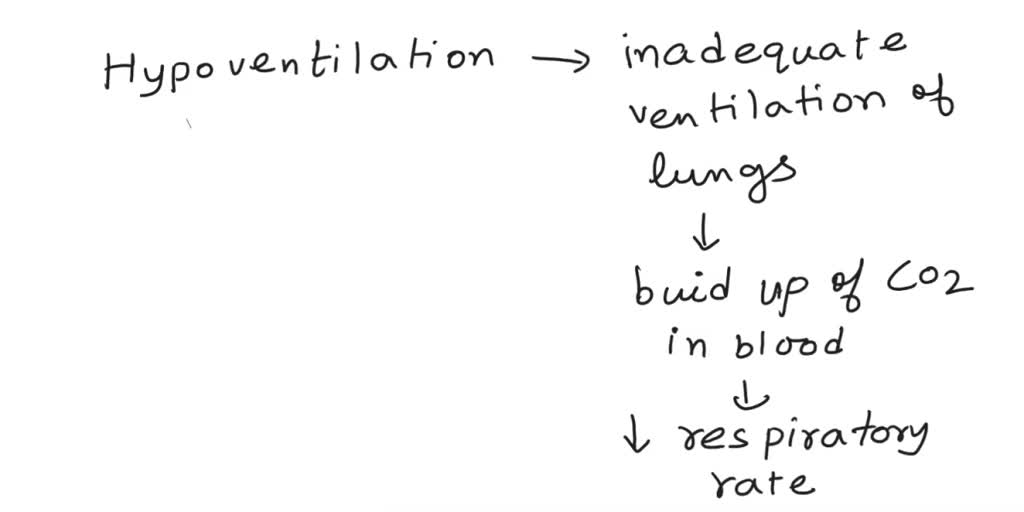 Hypoventilation → inadequate
ventilation of
lungs
↓
buid up of CO2
in blood
↓
↓ respiratory
rate